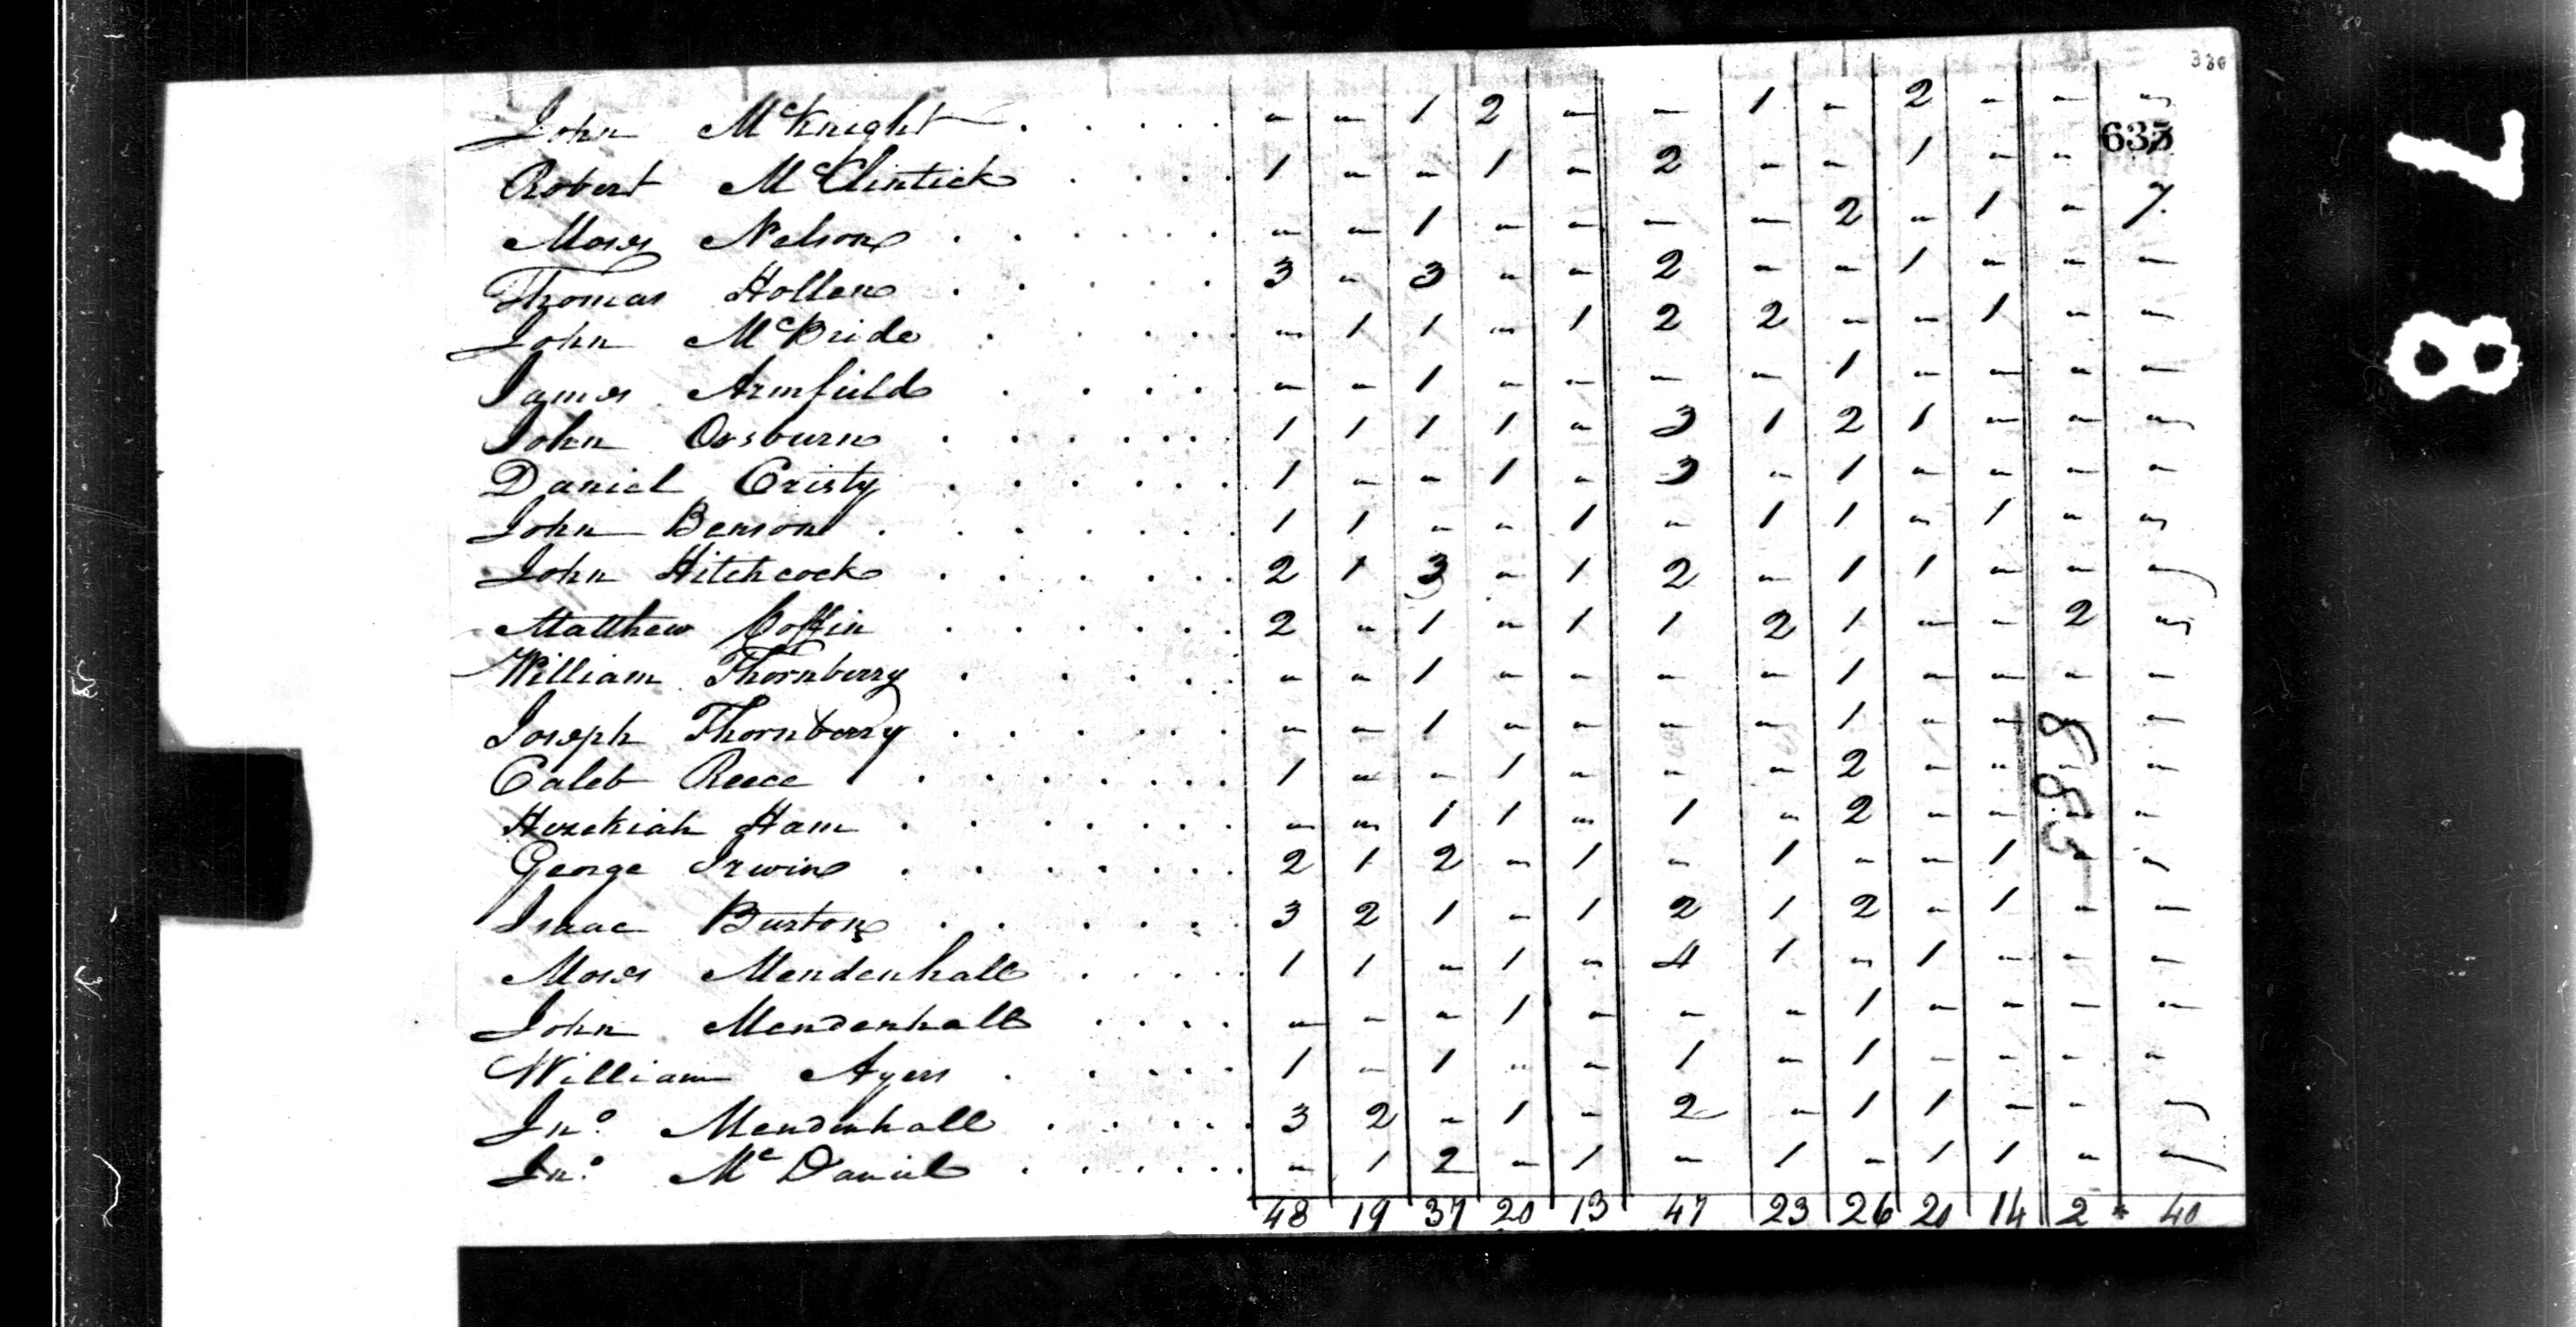 330
John McKnight . . . . . - - 1 2 - - 1 - 2 - - -
633
Robert McClintick . . . . 1 - - 1 - 2 - - 1 - -
Moses Nelson . . . . . . - - 1 - - - - 2 - 1 - 7
Thomas Hollen . . . . . 3 - 3 - - 2 - - 1 - - -
John McBride . . . . . - 1 1 - 1 2 2 - - 1 - -
James Armfield . . . . . - - 1 - - - - 1 - - - -
John Ossburn . . . . . . 1 1 1 1 - 3 1 2 1 - - -
Daniel Cristy . . . . . . 1 - - 1 - 3 - 1 - - - -
John Benson . . . . . . . 1 1 - - 1 - 1 1 - 1 - -
John Hitchcock . . . . . . 2 1 3 - 1 2 - 1 1 - - -
Matthew Coffin . . . . . . 2 - 1 - 1 1 2 1 - - 2 -
William Thornberry . . . . . . - - 1 - - - - 1 - - - -
Joseph Thornberry . . . . . . - - 1 - - - - 1 - - - -
Caleb Reece . . . . . . . 1 - - 1 - - - 2 - - - -
Hezekiah Ham . . . . . . . - - 1 1 - 1 - 2 - - - -
George Irwin . . . . . . . 2 1 2 - 1 - 1 - - 1 - -
Isaac Burton . . . . . . 3 2 1 - 1 2 1 2 - 1 - -
Moses Mendenhall . . . . . 1 1 - 1 - 4 1 - 1 - - -
John Mendenhall . . . . - - - 1 - - - 1 - - - -
William Ayers . . . . . 1 - 1 - - 1 - 1 - - - -
Jno. Mendenhall . . . . . 3 2 - 1 - 2 - 1 1 - - -
Jno. McDaniel . . . . . . - 1 2 - 1 - 1 - 1 1 - -
48 19 37 20 13 47 23 26 20 14 2 * 40
78